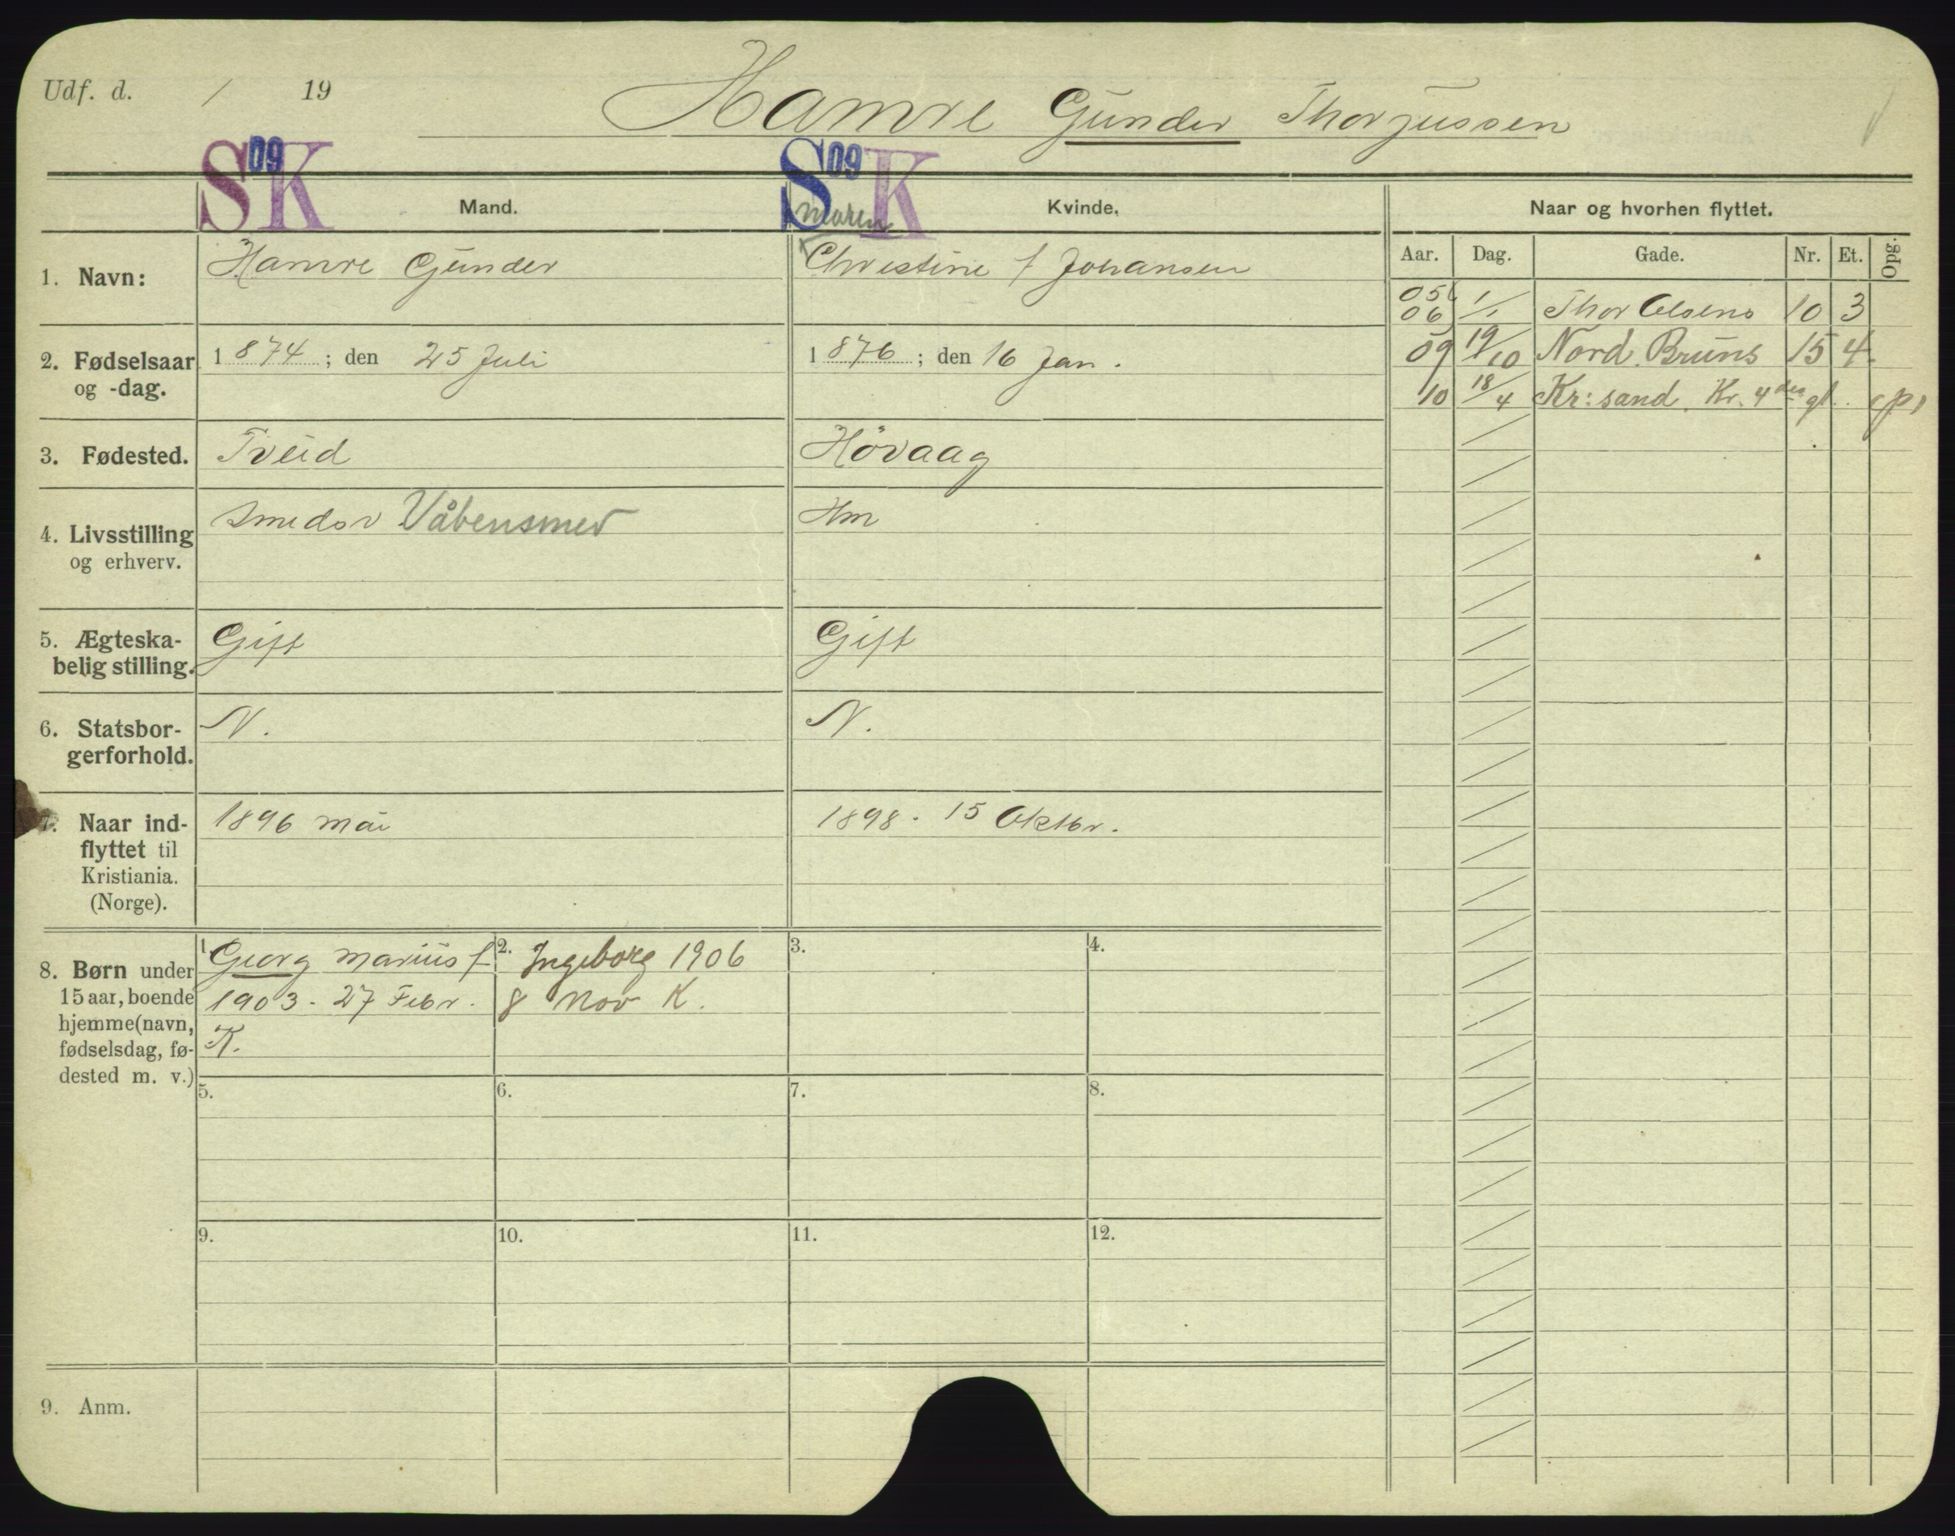 Udf. d. / 19
Hamre Gunder Thorjussen
S 09 K
S 09 K
Mand.
Kvinde.
Naar og hvorhen flyttet.
Aar. Dag. Gade. Nr. Et. Opg.
1. Navn:
Hamre Gunder
Maren
Christine f Johansen
05
06 1/1 Thor Olsens 10 3
09 19/10 Nord. Bruns 15 4
10 18/4 Kr:sand. Kr. 4
2. Fødselsaar
og -dag.
1874; den 25 Juli
1876; den 16 Jan.
3. Fødested.
Tveid
Hövaag
4. Livsstilling
og erhverv.
Smedsv Våbensmed
Hm
5. Ægteska-
belig stilling.
Gift
Gift
6. Statsbor-
gerforhold.
N.
N.
7. Naar ind-
flyttet til
Kristiania.
(Norge).
1896 Mai
1898. 15 Oktbr.
8. Børn under
15 aar, boende
hjemme (navn,
fødselsdag, fø-
dested m. v.)
1. Georg Marius f
1903. 27 Febr.
K.
2. Ingeborg 1906
8 Nov K.
3.
4.
5.
6.
7.
8.
9.
10.
11.
12.
9. Anm.